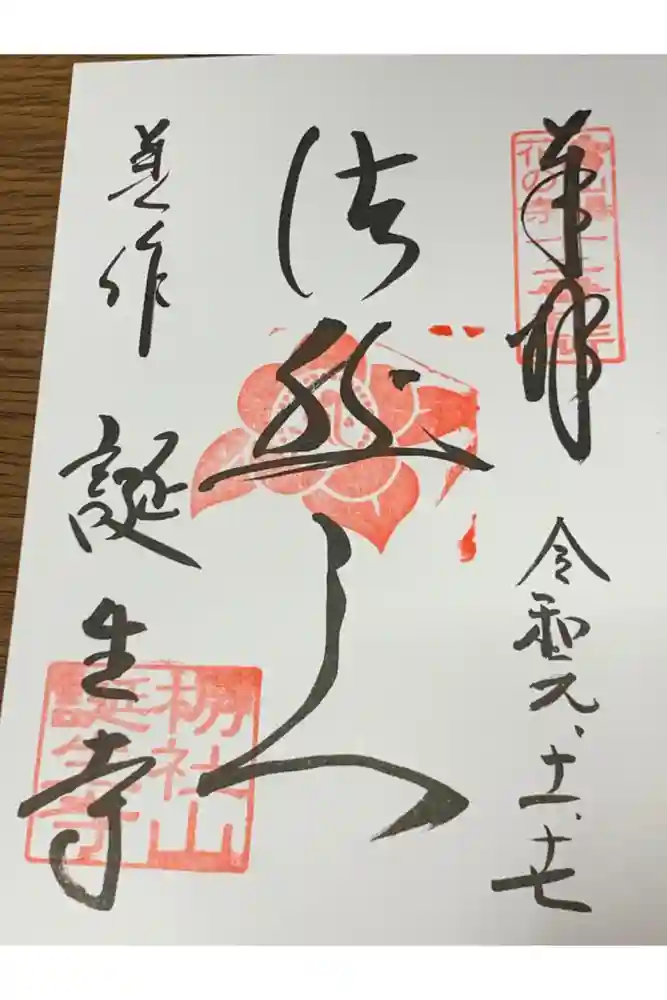 奉拝
令和元、十一、十七
法然上人
美作
誕生寺
花の寺
栃社山
誕生寺